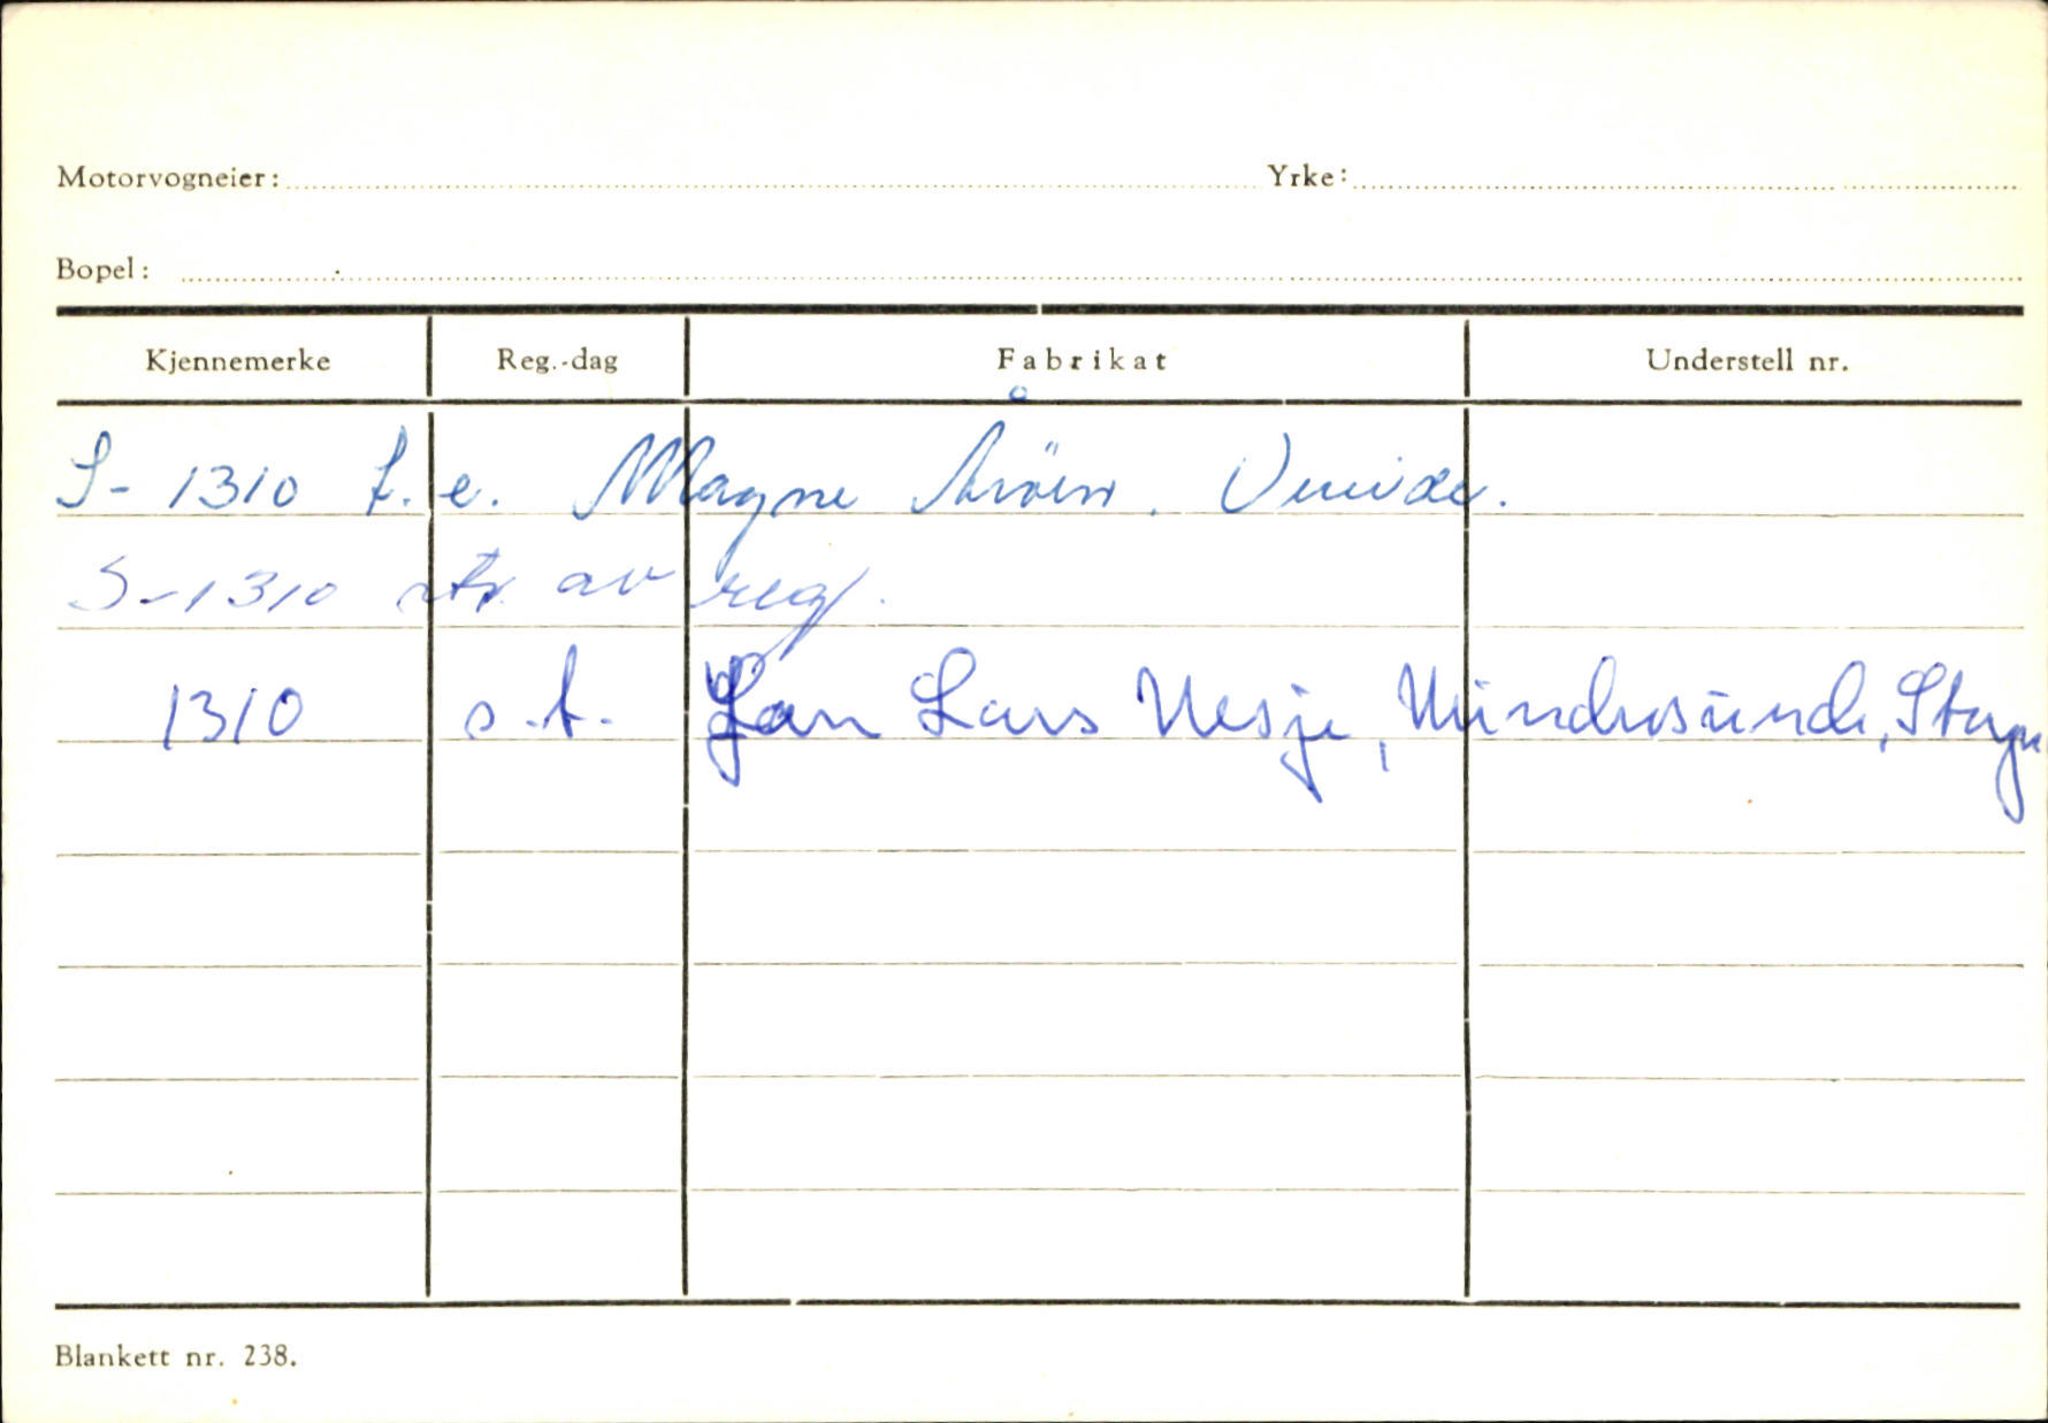 Motorvogneier: Yrke:
Bopel:
Kjennemerke Reg.-dag Fabrikat Understell nr.
S-1310 t.e. Magne
S-1310 str. av reg.
1310 s.t. Jan Lars Nesje, Mindresunde, Stryn
Blankett nr. 238.